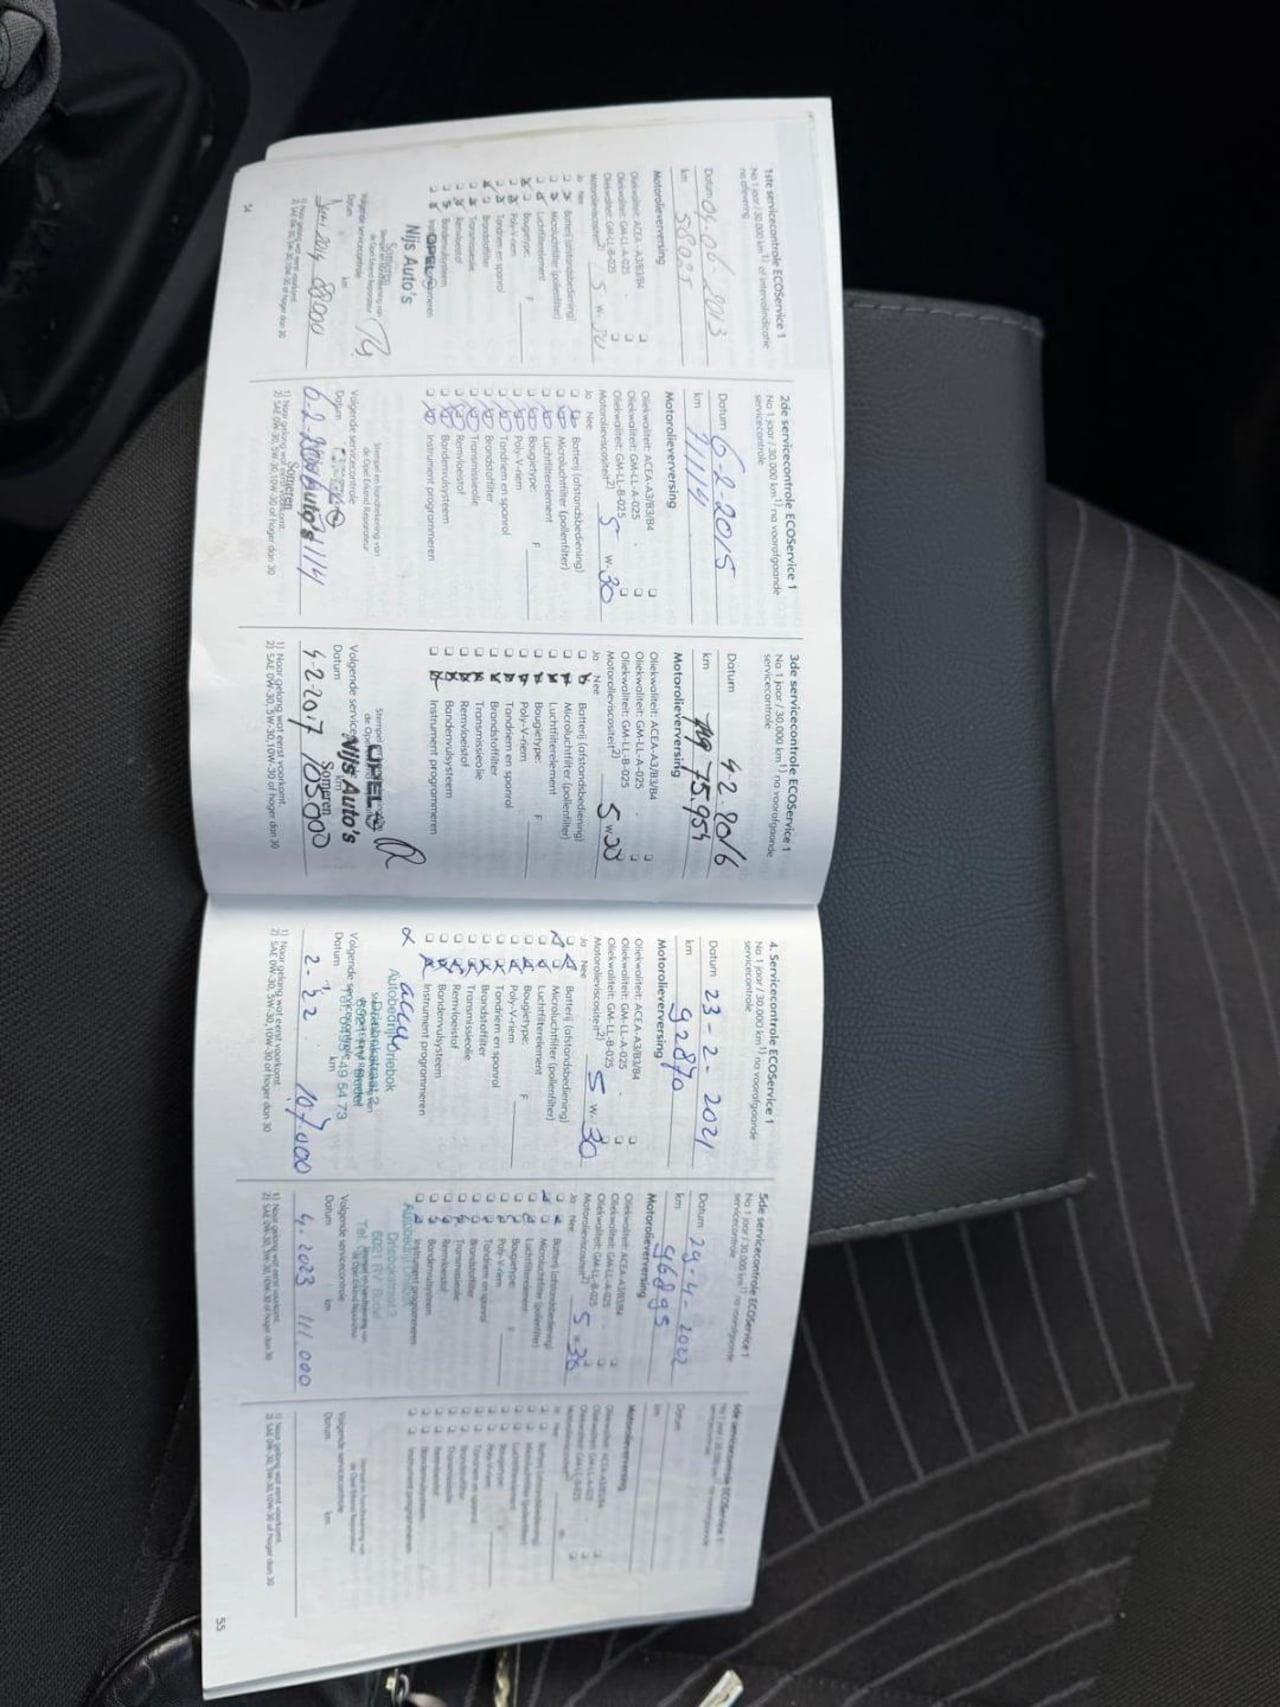 1ste servicecontrole ECOService 1
Na 1 jaar / 30.000 km1) of intervalindicatie
na aflevering
Datum 04-06-2013
km 58025
Motorolieverversing
Oliekwaliteit: ACEA-A3/B3/B4
Oliekwaliteit: GM-LL-A-025
Oliekwaliteit: GM-LL-B-025
Motorolieviscositeit2) 5 W- 30
Ja Nee
Batterij (afstandsbediening)
Microluchtfilter (pollenfilter)
Luchtfilterelement
Bougietype: F
Poly-V-riem
Tandriem en spanrol
Brandstoffilter
Transmissieolie
Remvloeistof
Bandenvulsysteem
OPEL
Nijs Auto's
Someren
Stempel en handtekening van
de Opel Erkend Reparateur
Volgende servicecontrole
Datum km
Juni 2014 88000
1) Naar gelang wat eerst voorkomt.
2) SAE 0W-30, 5W-30, 10W-30 of hoger dan 30
54
2de servicecontrole ECOService 1
Na 1 jaar / 30.000 km1) na voorafgaande
servicecontrole
Datum 6-2-2015
km 71114
Motorolieverversing
Oliekwaliteit: ACEA-A3/B3/B4
Oliekwaliteit: GM-LL-A-025
Oliekwaliteit: GM-LL-B-025
Motorolieviscositeit2) 5 W- 30
Ja Nee
Batterij (afstandsbediening)
Microluchtfilter (pollenfilter)
Luchtfilterelement
Bougietype: F
Poly-V-riem
Tandriem en spanrol
Brandstoffilter
Transmissieolie
Remvloeistof
Bandenvulsysteem
Instrument programmeren
Stempel en handtekening van
de Opel Erkend Reparateur
Volgende servicecontrole
Datum
6-2-2016
Auto's
Someren
1) Naar gelang wat eerst voorkomt.
2) SAE 0W-30, 5W-30, 10W-30 of hoger dan 30
3de servicecontrole ECOService 1
Na 1 jaar / 30.000 km1) na voorafgaande
servicecontrole
Datum 4-2-2016
km 75.954
Motorolieverversing
Oliekwaliteit: ACEA-A3/B3/B4
Oliekwaliteit: GM-LL-A-025
Oliekwaliteit: GM-LL-B-025
Motorolieviscositeit2) 5 W- 30
Ja Nee
Batterij (afstandsbediening)
Microluchtfilter (pollenfilter)
Luchtfilterelement
Bougietype: F
Poly-V-riem
Tandriem en spanrol
Brandstoffilter
Transmissieolie
Remvloeistof
Bandenvulsysteem
Instrument programmeren
OPEL
Nijs Auto's
Someren
Datum km
4-2-2017 105000
1) Naar gelang wat eerst voorkomt.
2) SAE 0W-30, 5W-30, 10W-30 of hoger dan 30
4. Servicecontrole ECOService 1
Na 1 jaar / 30.000 km1) na voorafgaande
servicecontrole
Datum 23-2-2021
km 92870
Motorolieverversing
Oliekwaliteit: ACEA-A3/B3/B4
Oliekwaliteit: GM-LL-A-025
Oliekwaliteit: GM-LL-B-025
Motorolieviscositeit2) 5 W- 30
Ja Nee
Batterij (afstandsbediening)
Microluchtfilter (pollenfilter)
Luchtfilterelement
Bougietype: F
Poly-V-riem
Tandriem en spanrol
Brandstoffilter
Transmissieolie
Remvloeistof
Bandenvulsysteem
Instrument programmeren
accu
Autobedrijf Driebok
Tel. 0495 - 49 54 73
Datum km
2-'22 107.000
1) Naar gelang wat eerst voorkomt.
2) SAE 0W-30, 5W-30, 10W-30 of hoger dan 30
5de servicecontrole ECOService 1
Na 1 jaar / 30.000 km1) na voorafgaande
servicecontrole
Datum 29-4-2022
km 96895
Motorolieverversing
Oliekwaliteit: ACEA-A3/B3/B4
Oliekwaliteit: GM-LL-A-025
Oliekwaliteit: GM-LL-B-025
Motorolieviscositeit2) 5 W- 30
Ja Nee
Batterij (afstandsbediening)
Microluchtfilter (pollenfilter)
Luchtfilterelement
Bougietype: F
Poly-V-riem
Tandriem en spanrol
Brandstoffilter
Transmissieolie
Remvloeistof
Bandenvulsysteem
Instrument programmeren
6021 RV Budel
Volgende servicecontrole
Datum km
4-2023 111 000
1) Naar gelang wat eerst voorkomt.
2) SAE 0W-30, 5W-30, 10W-30 of hoger dan 30
6de servicecontrole ECOService 1
servicecontrole
Datum
km
Motorolieverversing
Volgende servicecontrole
Datum km
1) Naar gelang wat eerst voorkomt.
2) SAE 0W-30, 5W-30, 10W-30 of hoger dan 30
55